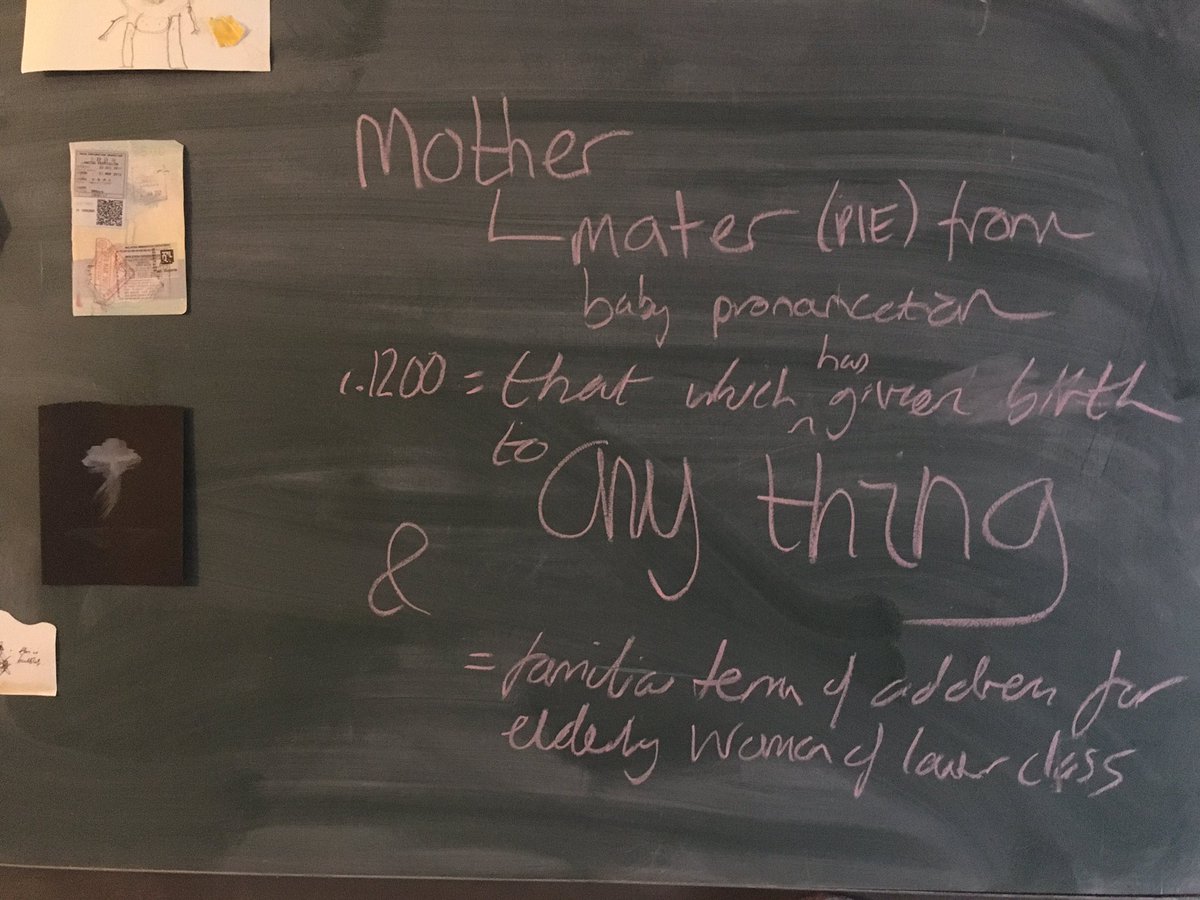 Mother
mater (PIE) from
baby pronunciation
c.1200 = that which has given birth
to any thing
&
= familiar term of address for
elderly woman of lower class